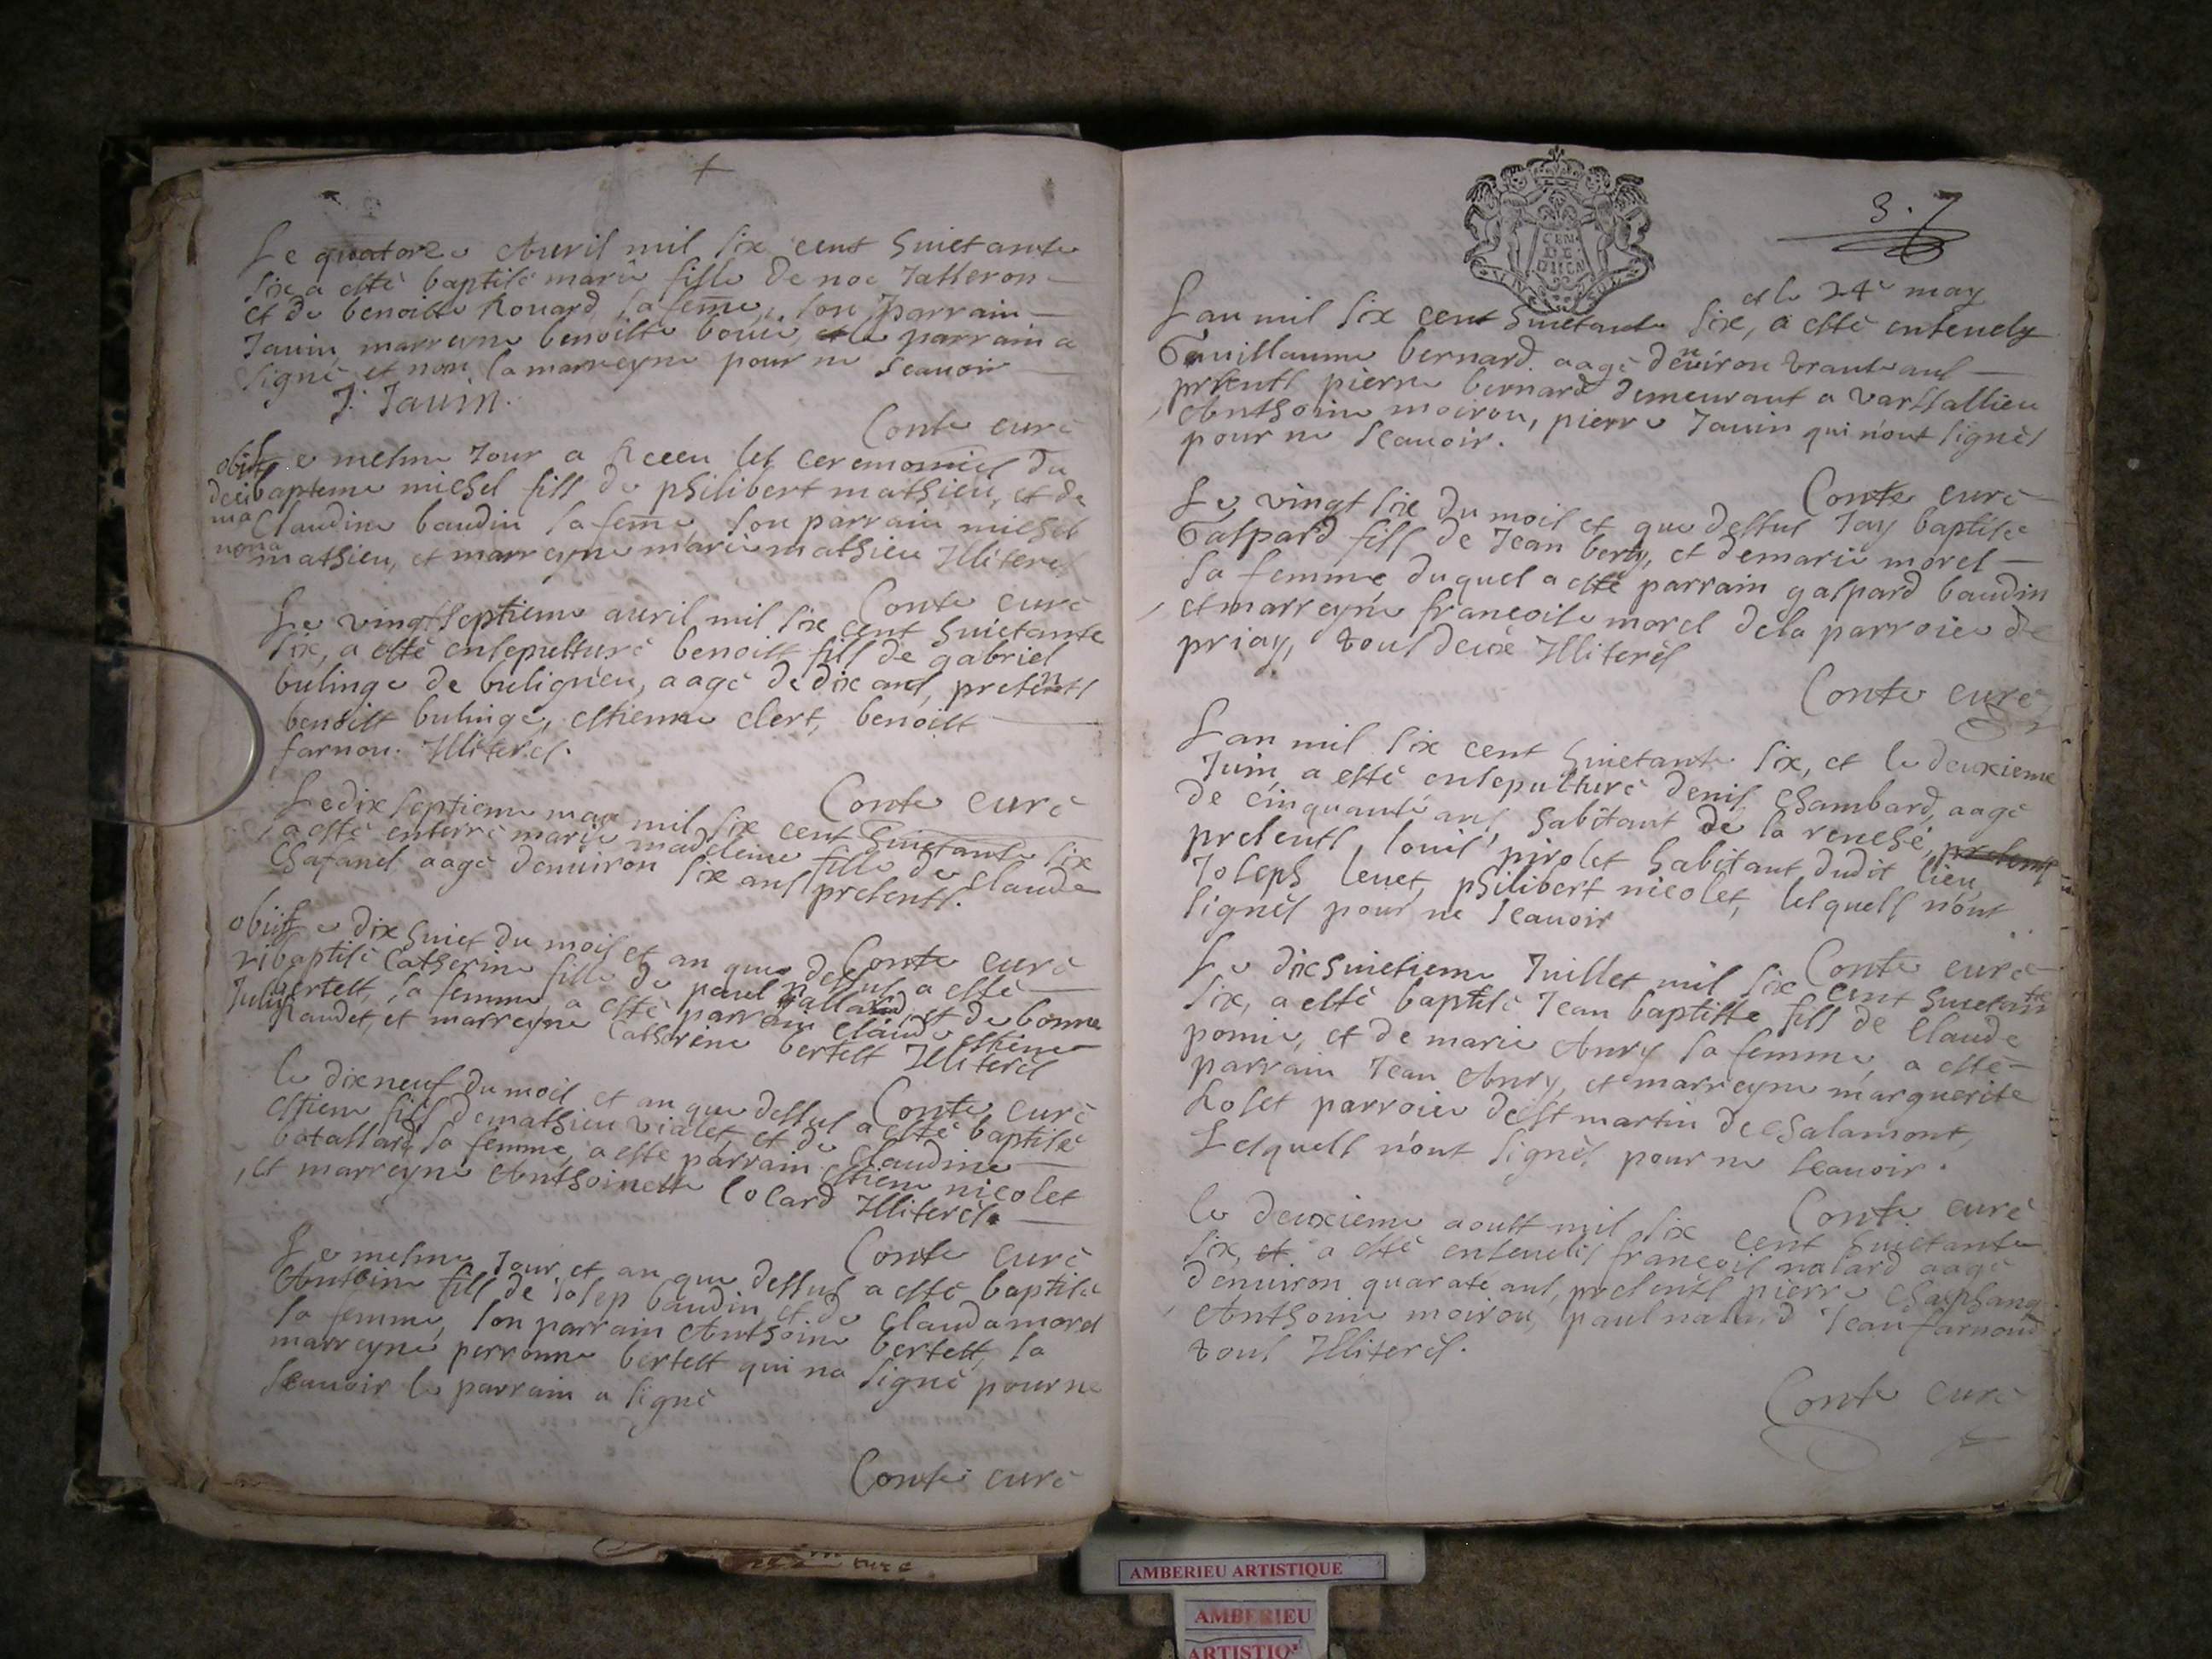 +
Le quatorze Auvril mil six cent huictante
six a esté baptisé marie fille de noe Tatteron
et de benoitte Rouard sa feme, son parrain
Janin, marreyne benoitte bouié, et le parrain a
signé et non la marreyne pour ne scauoir
J. Janin.
Conte curé
obiit Le mesme Jour a Receu les ceremonies du
deci bapteme michel fils de philibert mathieu, et de
ma Claudine baudin sa feme son parrain michel
nona mathieu, et marreyne marie mathieu Illiterés
Conte curé
Le vingt septieme auril mil six cent huictante
six, a esté ensepulturé benoist fils de gabriel
bulinge de buligneu, aagé de dix ans, presents
benoist bulinge, estienne clert, benoist
farnou. Illiterés.
Conte curé
Le dix septieme may mil six cent huictante six
a esté enterré marie madeleine fille de claude
Chafanel aagé denuiron six ans presents.
Conte curé
obiit Le dix huict du mois et an que dessus a esté
ri baptisé Catherine fille de paul gallard, et de bonne
Julij bertelt, sa femme, a esté parrain Claude
Raudet, et marreyne Catherine bertelt Illiterés
Conte curé
Le dixneuf du mois et an que dessus a esté baptisé
estiene fils de mathieu vialet, et de Claudine
batallard sa femme, a esté parrain Estiene nicolet
, et marreyne Anthoinette Colard Illiterés.
Conte curé
Le mesme Jour et an que dessus a esté baptisé
Antoine fils de Josep baudin et de Clauda morel
sa femme, son parrain Anthoine bertelt, sa
marreyne perronne bertelt qui na signé pour ne
scauoir le parrain a signé
Conte curé
3. 7
et le 24e may
Lan mil six cent huictante six, a esté enseuely
Guillaume bernard aagé denuiron trante ans
presents pierre bernard demeurant a varssallieu
, Anthoine moirou, pierre Janin qui nont signés
pour ne scauoir.
Conte curé
Le vingt six du mois et que dessus Jay baptisé
Gaspard fils de Jean bery, et de marie morel
sa femme duquel a esté parrain gaspard baudin
, et marreyne francoise morel de la parroice de
priay, tous deux Illiterés
Conte curé
Lan mil six cent huictante six, et le deuxieme
Juin a esté ensepulturé denis Chambard, aagé
de cinquante ans, habitant de la renche, presents
presents, louis pirolet habitant dudit lieu,
Joseph leuet, philibert nicolet, lesquells nont
signés pour ne scauoir
Conte curé
Le dixhuictieme Juillet mil six cent huictante
six, a esté baptisé Jean baptiste fils de Claude
pomie, et de marie Anry sa femme, a esté
parrain Jean Anry, et marreyne marguerite
Roset parroice de st martin de chalamont,
Lesquells nont signés pour ne scauoir.
Conte curé
Le deuxieme aoust mil six cent huictante
six, et a esté enseuelis francois nalard aagé
denuiron quarate ans, presents pierre Chaphang
, Anthoine moirou, paul nalard Jean farnoud
tous Illiterés.
Conte curé
AMBERIEU ARTISTIQUE
AMBERIEU
ARTISTIQ